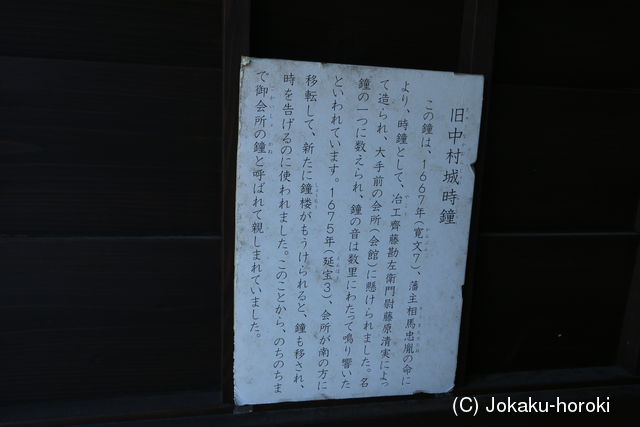 旧中村城時鐘
この鐘は、1667年(寛文7)、藩主相馬忠胤の命に
より、時鐘として、冶工齊藤勘左衛門尉藤原清実によっ
て造られ、大手前の会所(会館)に懸けられました。名
鐘の一つに数えられ、鐘の音は数里にわたって鳴り響いた
といわれています。1675年(延宝3)、会所が南の方に
移転して、新たに鐘楼がもうけられると、鐘も移され、
時を告げるのに使われました。このことから、のちのちま
で御会所の鐘と呼ばれて親しまれていました。
(C) Jokaku-horoki